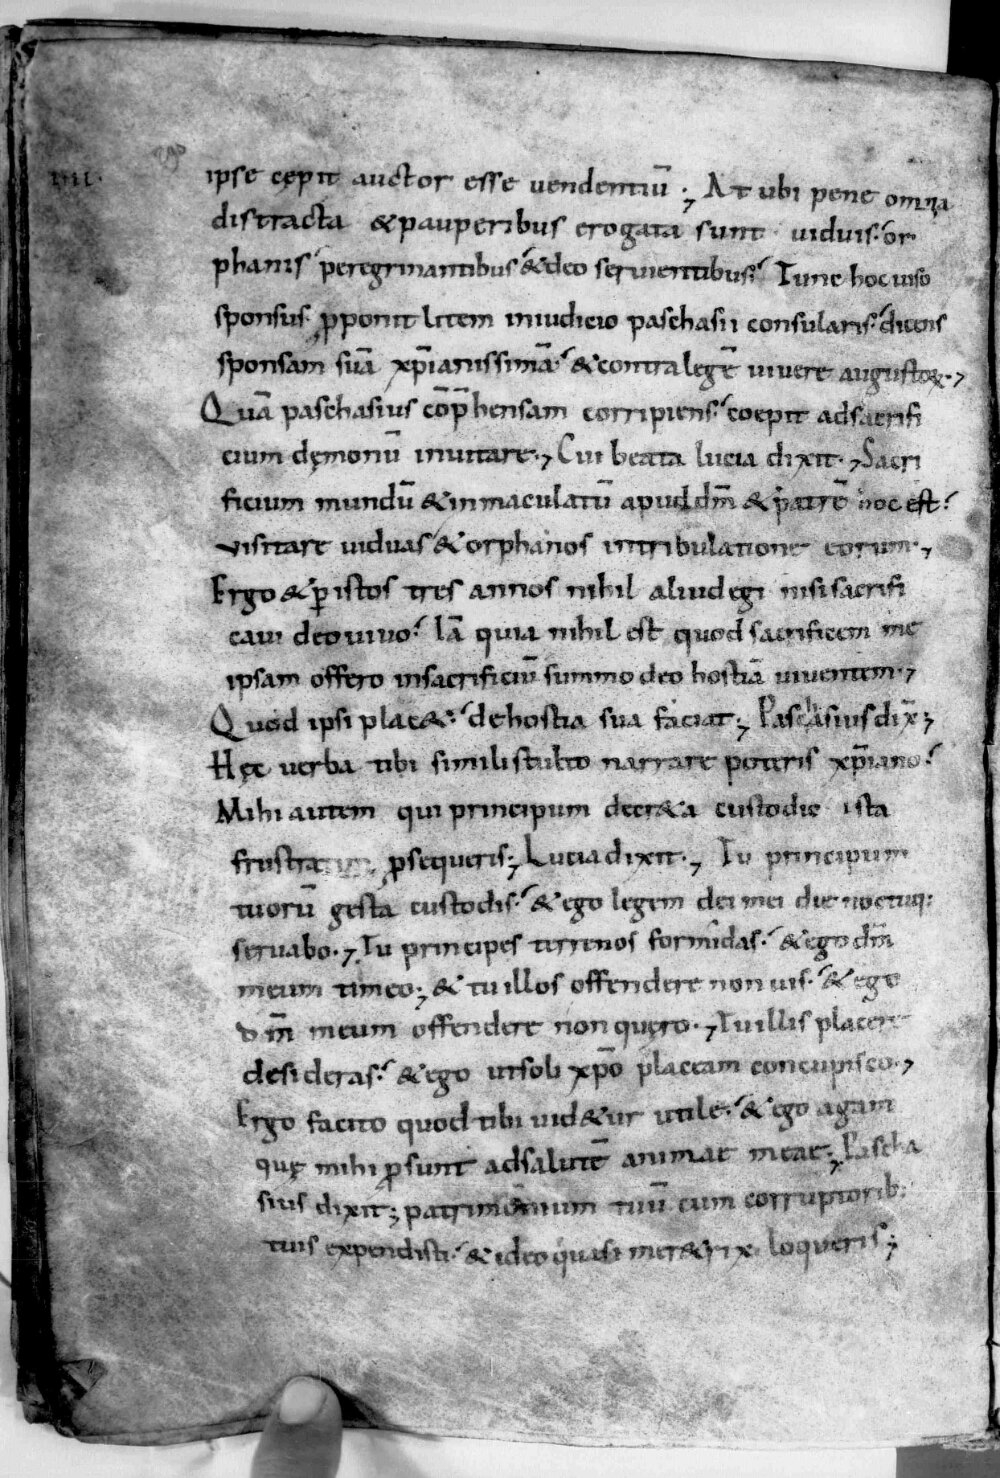 ergo
IIII. ipse cępit auctor esse uendentiū ; At ubi pene omnia
distracta & pauperibus erogata sunt uiduis or
phanis peregrinantibus & deo seruientibus. Tunc hoc uiso
sponsus p̄ponit litem in iudicio paschasii consularis. dicens
sponsam suā xp̄ianissimā & contra legē uiuere augustoꝝ.,
Quā paschasius cōp̄hensam corripiens. coepit ad sacrifi
cium dęmonū inuitare., Cui beata lucia dixit., Sacri
ficium mundū & inmaculatū apud dm̄ & patrē hoc est.
uisitare uiduas & orphanos in tribulatione eorum.,
Ergo & ꝑ istos tres annos nihil aliud egi nisi sacrifi
caui deo uiuo. Iā quia nihil est quod sacrificem me
ipsam offero in sacrificiū summo deo hostiā uiuentem.,
Quod ipsi plac&. de hostia sua faciat ; Paschasius dix̄ ;
Hęc uerba tibi simili stulto narrare poteris xp̄iano.
Mihi autem qui principum decr&a custodio ista
frustra ꝑsequeris ; Lucia dixit., Tu principum
tuorū gesta custodis. & ego legem dei mei die noctuq:
seruabo., Tu principes terrenos formidas. & ego dm̄
meum timeo ; & tu illos offendere non uis. & ego
dm̄ meum offendere non quęro., Tu illis placere
desideras. & ego ut soli xp̄o placeam concupisco.,
Ergo facito quod tibi uid&ur utile. & ego agam
quę mihi ꝓsunt ad salutē animae meae ; Pascha
sius dixit ; patrimonium tuū cum corruptorib:
tuis expendisti. & ideo quasi mer&rix loqueris ;